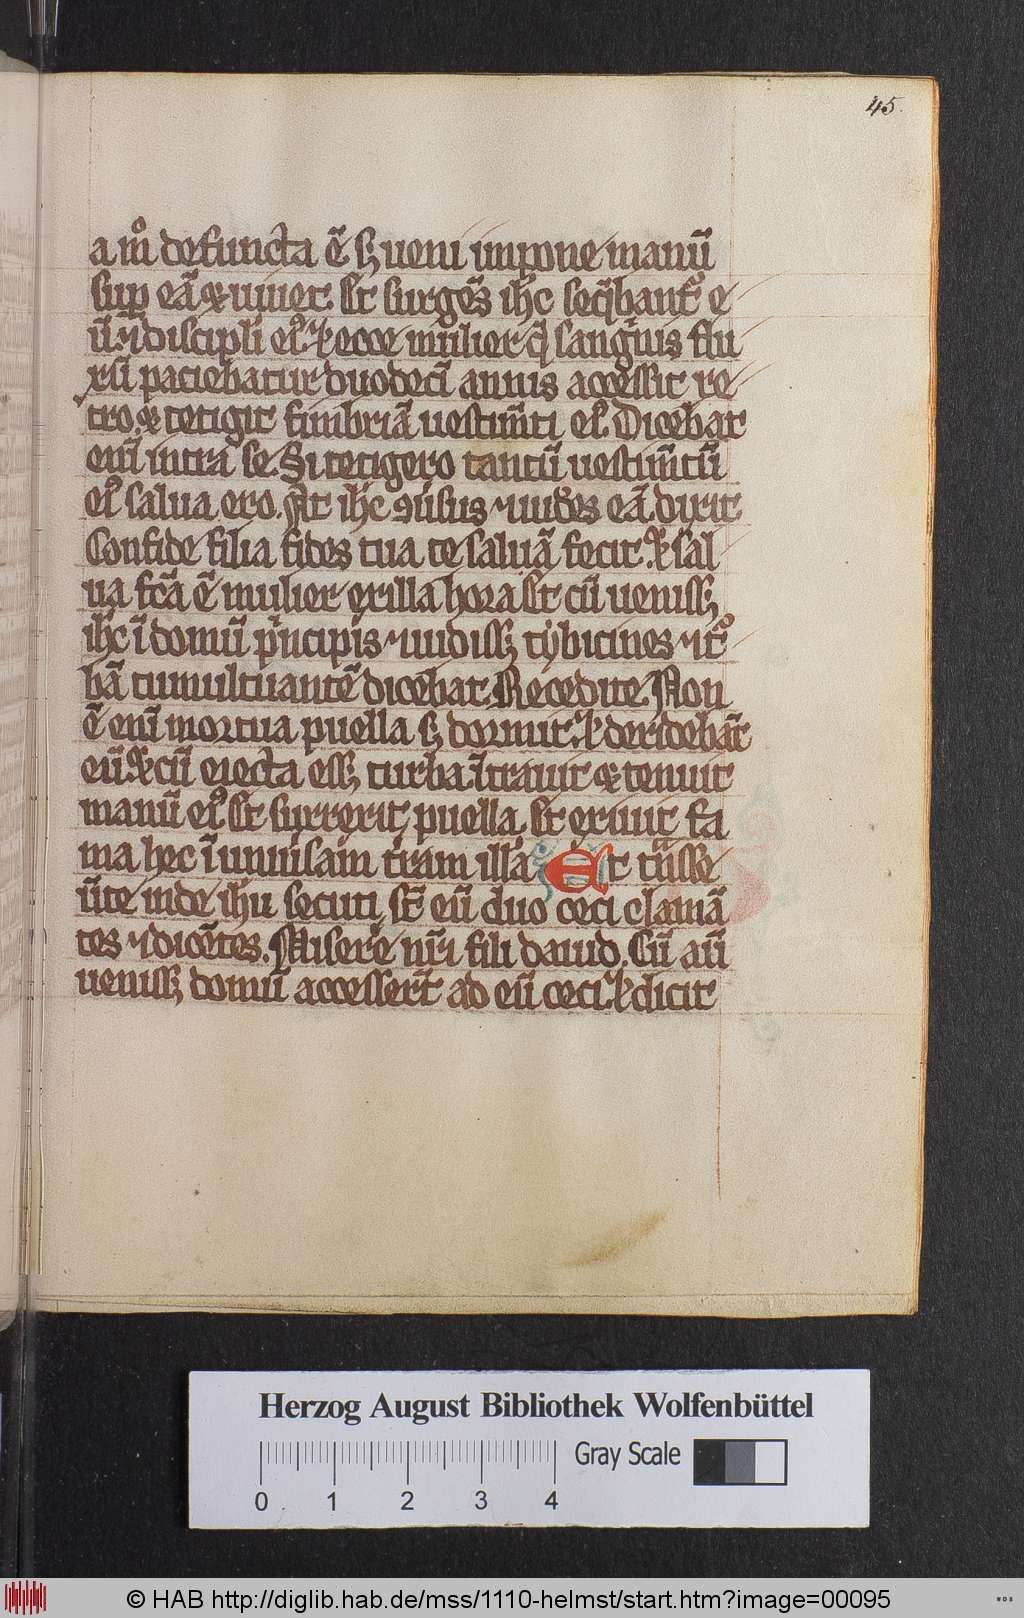 45.
a mͦ defuncta ē sꝫ ueni impone manū
suꝑ eā ⁊ uiuet. Et surgēs ihc seq̄bantᷣ e
ū ⁊ discipli eiꝰ. ⁊ ecce mulier q̄ sangͥnis flu
xū paciebatur duodeci annis accessit re
tro. ⁊ tetigit fimbriā uestimͤti eiꝰ. Dicebat
enī intra se. Si tetigero tantū uestimͤtū
eiꝰ salua ero. At ihc ꝯuͥsus ⁊ uidēs eā dixit
Confide filia fides tua te saluā fecit. ⁊ sal
ua fc̄a ē mulier ex illa hora. Et cū uenissꝫ
ihc ī domū pͥncipis ⁊ uidissꝫ tybicines ⁊ tͦ
bā tumultuantē dicebat. Recedite. Non
ē enī mortua puella sꝫ dormit. ⁊ deridebāt
eū. ⁊ cū eiecta essꝫ turba ītrauit ⁊ tenuit
manū eiꝰ. Et surrexit puella. Et exiuit fa
ma hec ī uniuͥsam tͥram illā Et tͣnsse
ūte inde ihu secuti st̄ eū duo ceci clamā
tes ⁊ dicētes. Miserͤe nrͥi fili dauid. Cū aū
uenissꝫ domū accesserͭ ad eū ceci. ⁊ dicit
Herzog August Bibliothek Wolfenbüttel
Gray Scale
0 1 2 3 4
© HAB http://diglib.hab.de/mss/1110-helmst/start.htm?image=00095